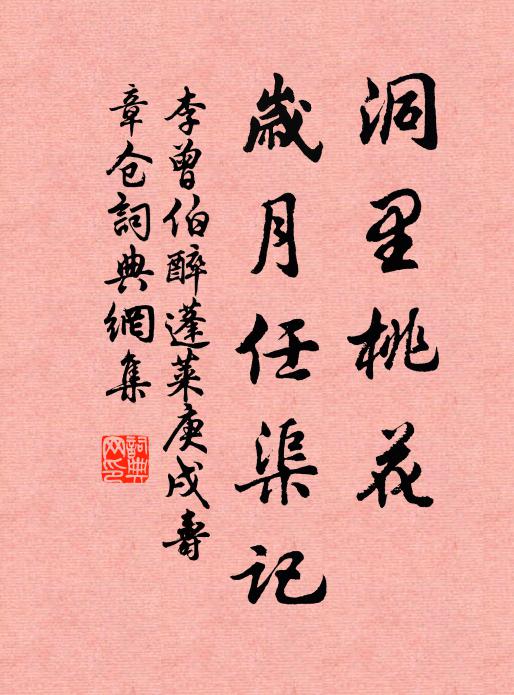 洞里桃花
歲月任渠記
李曾伯醉蓬萊庚戌壽
章仓詞典網集
詞典
网印